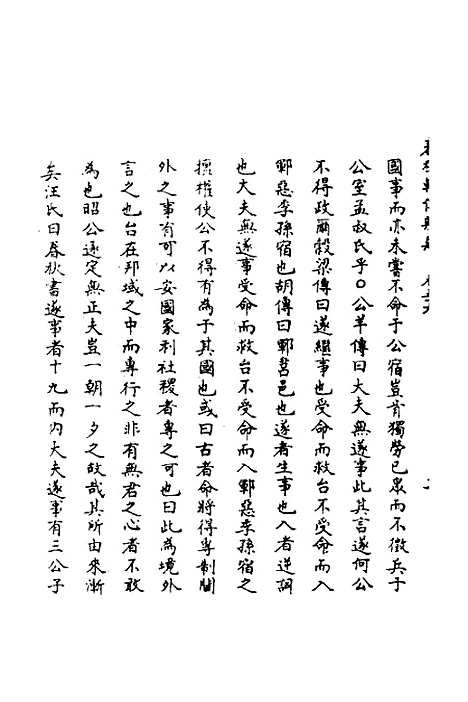 國事而亦未嘗不命于公宿豈肯獨勞已眾而不徵兵于
公室孟叔氏乎○公羊傳曰大夫無遂事此其言遂何公
不得政爾穀梁傳曰遂繼事也受命而救台不受命而入
鄆惡季孫宿也胡傳曰鄆莒邑也遂者生事也入者逆詞
也大夫無遂事受命而救台不受命而入鄆惡季孫宿之
擅權使公不得有為于其國也或曰古者命將得專制閫
外之事有可以安國家利社稷者專之可也曰此為境外
言之也台在邦域之中而專行之非有無君之心者不敢
為也昭公逐定無正夫豈一朝一夕之故哉其所由來漸
矣汪氏曰春秋書遂事者十九而內大夫遂事有三公子